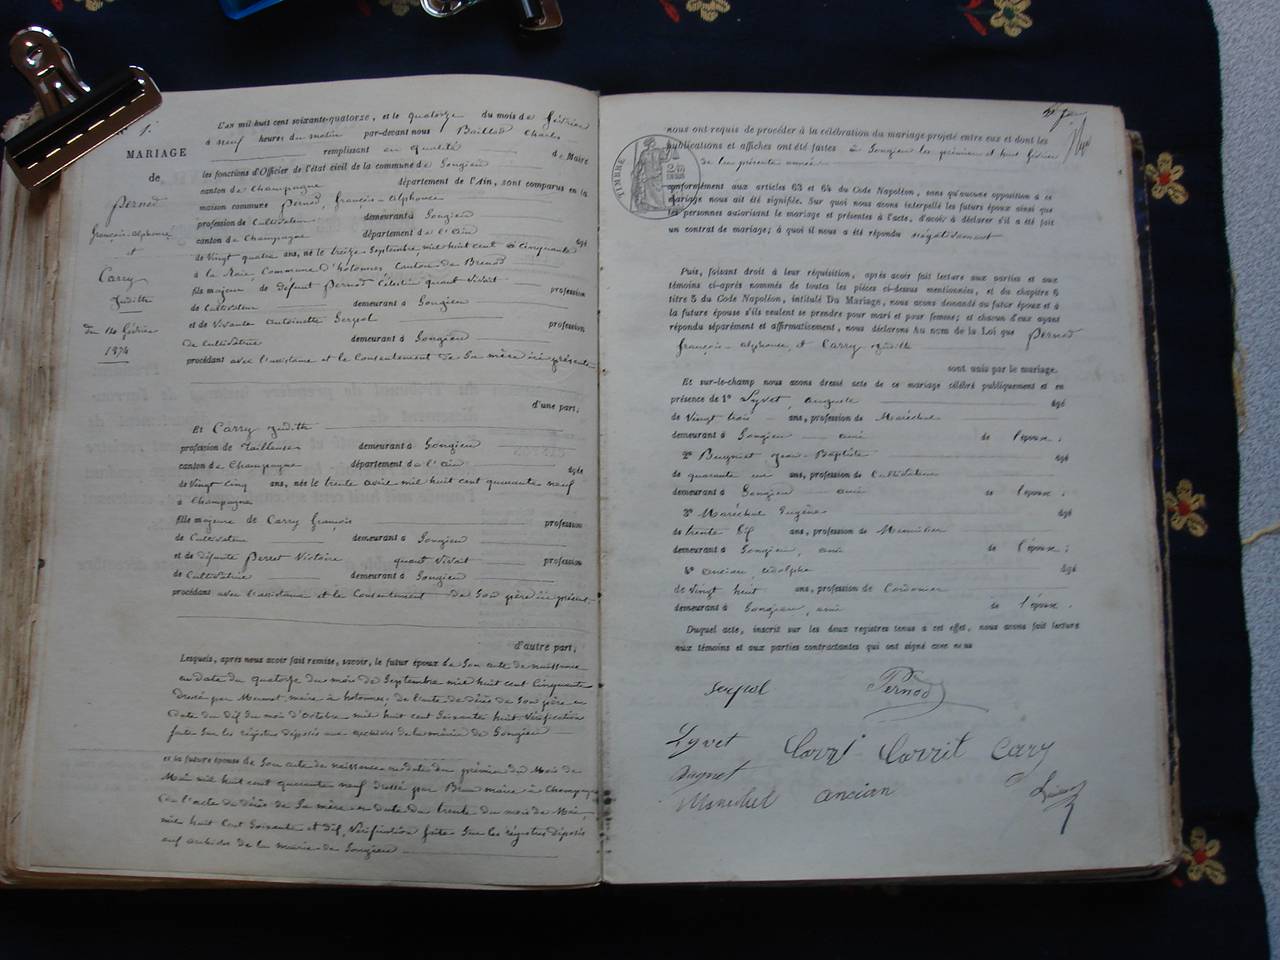 N° 1.
MARIAGE
de
Pernod
françois-alphonse
et
Carry
Judith
du 14 février
1874
L'an mil huit cent soixante-quatorze, et le quatorze du mois de février
à neuf heures du matin par-devant nous Baillod Charles
remplissant en qualité de Maire
les fonctions d'Officier de l'état civil de la commune de Songieu
canton de Champagne département de l'Ain, sont comparus en la
maison commune Pernod, françois-alphonse
profession de Cultivateur demeurant à Songieu
canton de Champagne département de l'Ain âgé
de Vingt quatre ans, né le treize Septembre mil huit cent cinquante
à la Commune d'hotonnes Canton de Brenod
fils majeur de défunt Pernod Célestin quant vivait profession
de Cultivateur demeurant à Songieu
et de Vivante Antoinette Serpol profession
de Cultivatrice demeurant à Songieu
procédant avec l'assistance et le Consentement de Sa mère ici présente
d'une part;
Et Carry Judith
profession de Tailleuse demeurant à Songieu
canton de Champagne département de l'Ain âgée
de Vingt Cinq ans, née le trente avril mil huit cent quarante neuf
à Champagne
fille majeure de Carry françois profession
de Cultivateur demeurant à Songieu
et de défunte Perret Victoire quant vivait profession
de Cultivatrice demeurant à Songieu
procédant avec l'assistance et le Consentement de Son père ici présent.
d'autre part;
Lesquels, après nous avoir fait remise, savoir, le futur époux de Son acte de naissance
en date du quatorze du mois de Septembre mil huit cent Cinquante
dressé par maire à hotonnes; de l'acte de décès de Son père en
date du dix du mois d'Octobre mil huit cent Soixante huit. Vérification
faite Sur les régistres déposés aux archives de la mairie de Songieu
et la future épouse de Son acte de naissance en date du premier du Mois de
Mai mil huit cent quarante neuf dressé par maire à Champagne
de l'acte de décès de Sa mère en date du trente du mois de Mai
mil huit Cent Soixante et dix, Vérification faite Sur les régistres déposés
aux archives de la mairie de Songieu
nous ont requis de procéder à la célébration du mariage projeté entre eux et dont les
publications et affiches ont été faites à Songieu les premier et huit février
de la présente année
TIMBRE
conformément aux articles 63 et 64 du Code Napoléon, sans qu'aucune opposition à ce
mariage nous ait été signifiée. Sur quoi nous avons interpellé les futurs époux ainsi que
les personnes autorisant le mariage et présentes à l'acte, d'avoir à déclarer s'il a été fait
un contrat de mariage; à quoi il nous a été répondu négativement
Puis, faisant droit à leur réquisition, après avoir fait lecture aux parties et aux
témoins ci-après nommés de toutes les pièces ci-dessus mentionnées, et du chapitre 6
titre 5 du Code Napoléon, intitulé Du Mariage, nous avons demandé au futur époux et à
la future épouse s'ils veulent se prendre pour mari et pour femme; et chacun d'eux ayant
répondu séparément et affirmativement, nous déclarons Au nom de la Loi que Pernod
françois-alphonse, et Carry Judith
sont unis par le mariage.
Et sur-le-champ nous avons dressé acte de ce mariage célébré publiquement et en
présence de 1° Lyvet, auguste âgé
de Vingt trois ans, profession de Maréchal
demeurant à Songieu ami de l'époux;
2° Jean-Baptiste âgé
de quarante un ans, profession de Cultivateur
demeurant à Songieu ami de l'époux;
3° Maréchal Eugène âgé
de trente six ans, profession de Menuisier
demeurant à Songieu, ami de l'épouse;
4° ancian, adolphe âgé
de Vingt huit ans, profession de Cordonnier
demeurant à Songieu, ami de l'épouse.
Duquel acte, inscrit sur les deux registres tenus à cet effet, nous avons fait lecture
aux témoins et aux parties contractantes qui ont signé avec nous
Serpol Pernod
Lyvet Carri Carrit Cary
Maréchal ancian